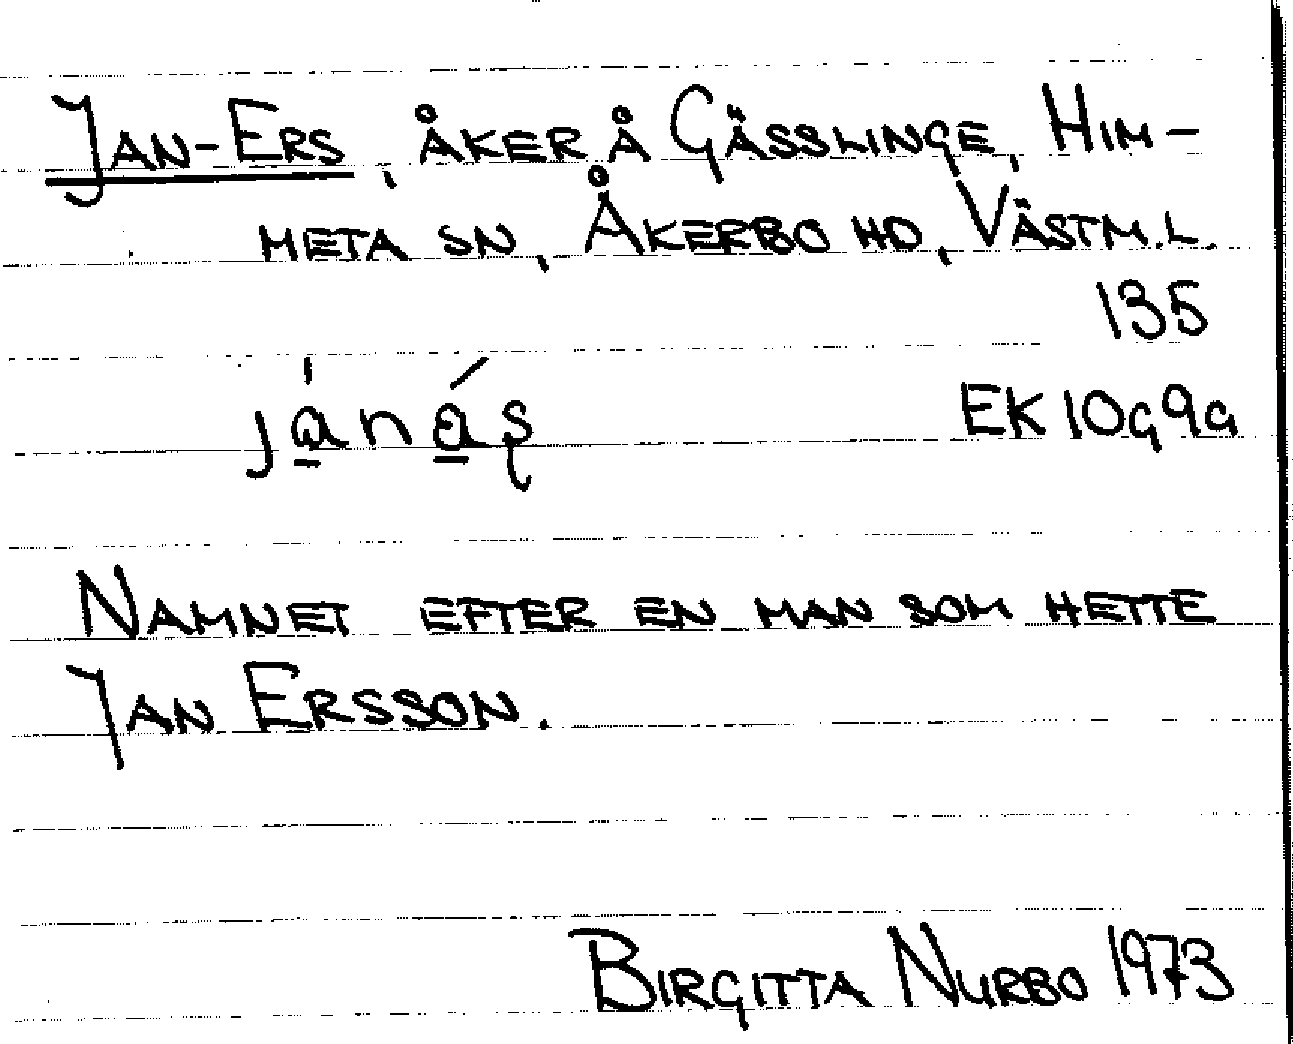 JAN-ERS, ÅKER Å GÄSSLINGE, HIM-
META SN, ÅKERBO HD, VÄSTM.L.
135
jànáş
EK 10g9a
NAMNET EFTER EN MAN SOM HETTE
JAN ERSSON.
BIRGITTA NURBO 1973